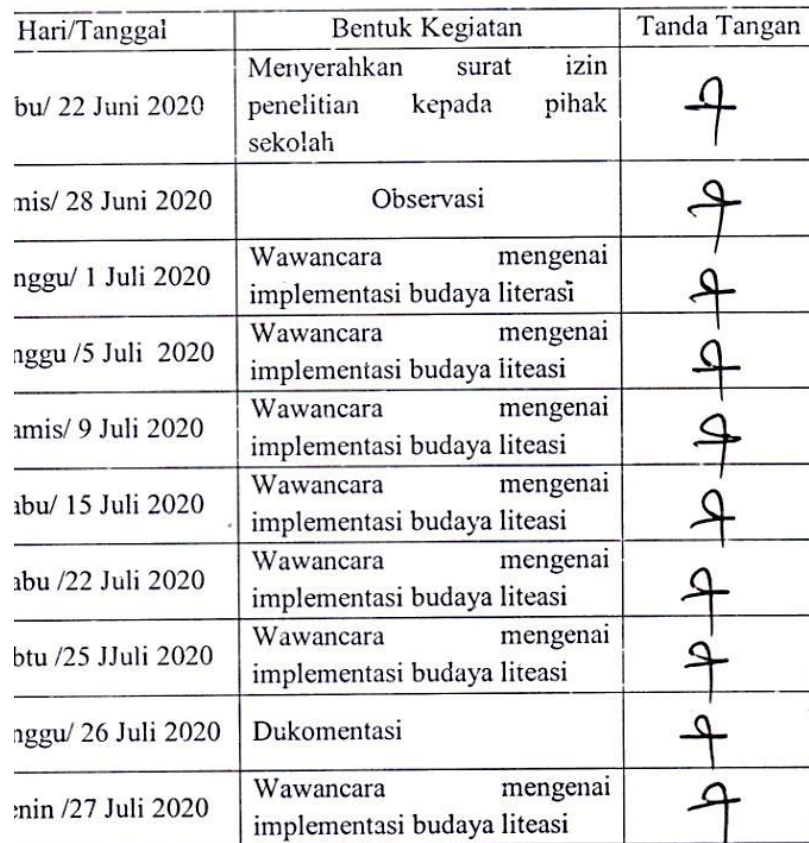 Hari/Tanggal Bentuk Kegiatan Tanda Tangan
Menyerahkan surat izin
bu/ 22 Juni 2020 penelitian kepada pihak
sekolah
mis/ 28 Juni 2020 Observasi
nggu/ 1 Juli 2020 Wawancara mengenai
implementasi budaya literasi
nggu /5 Juli 2020 Wawancara mengenai
implementasi budaya liteasi
amis/ 9 Juli 2020 Wawancara mengenai
implementasi budaya liteasi
abu/ 15 Juli 2020 Wawancara mengenai
implementasi budaya liteasi
abu /22 Juli 2020 Wawancara mengenai
implementasi budaya liteasi
btu /25 JJuli 2020 Wawancara mengenai
implementasi budaya liteasi
nggu/ 26 Juli 2020 Dukomentasi
enin /27 Juli 2020 Wawancara mengenai
implementasi budaya liteasi